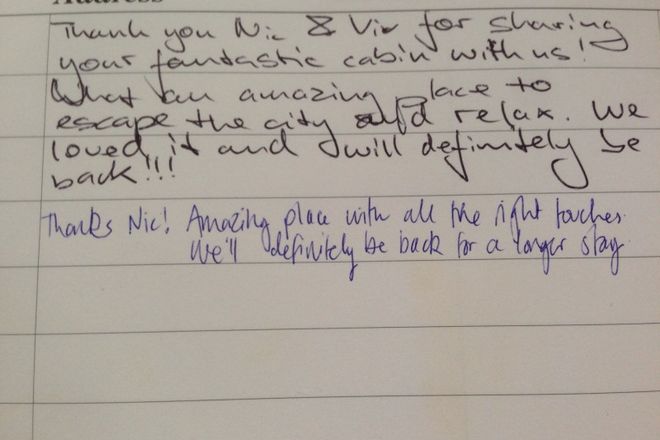 Address
Thank you Nic & Viv for sharing
your fantastic cabin with us!
What an amazing place to
escape the city and relax. We
loved it and will definitely be
back!!!
Thanks Nic! Amazing place with all the right touches.
We'll definitely be back for a longer stay